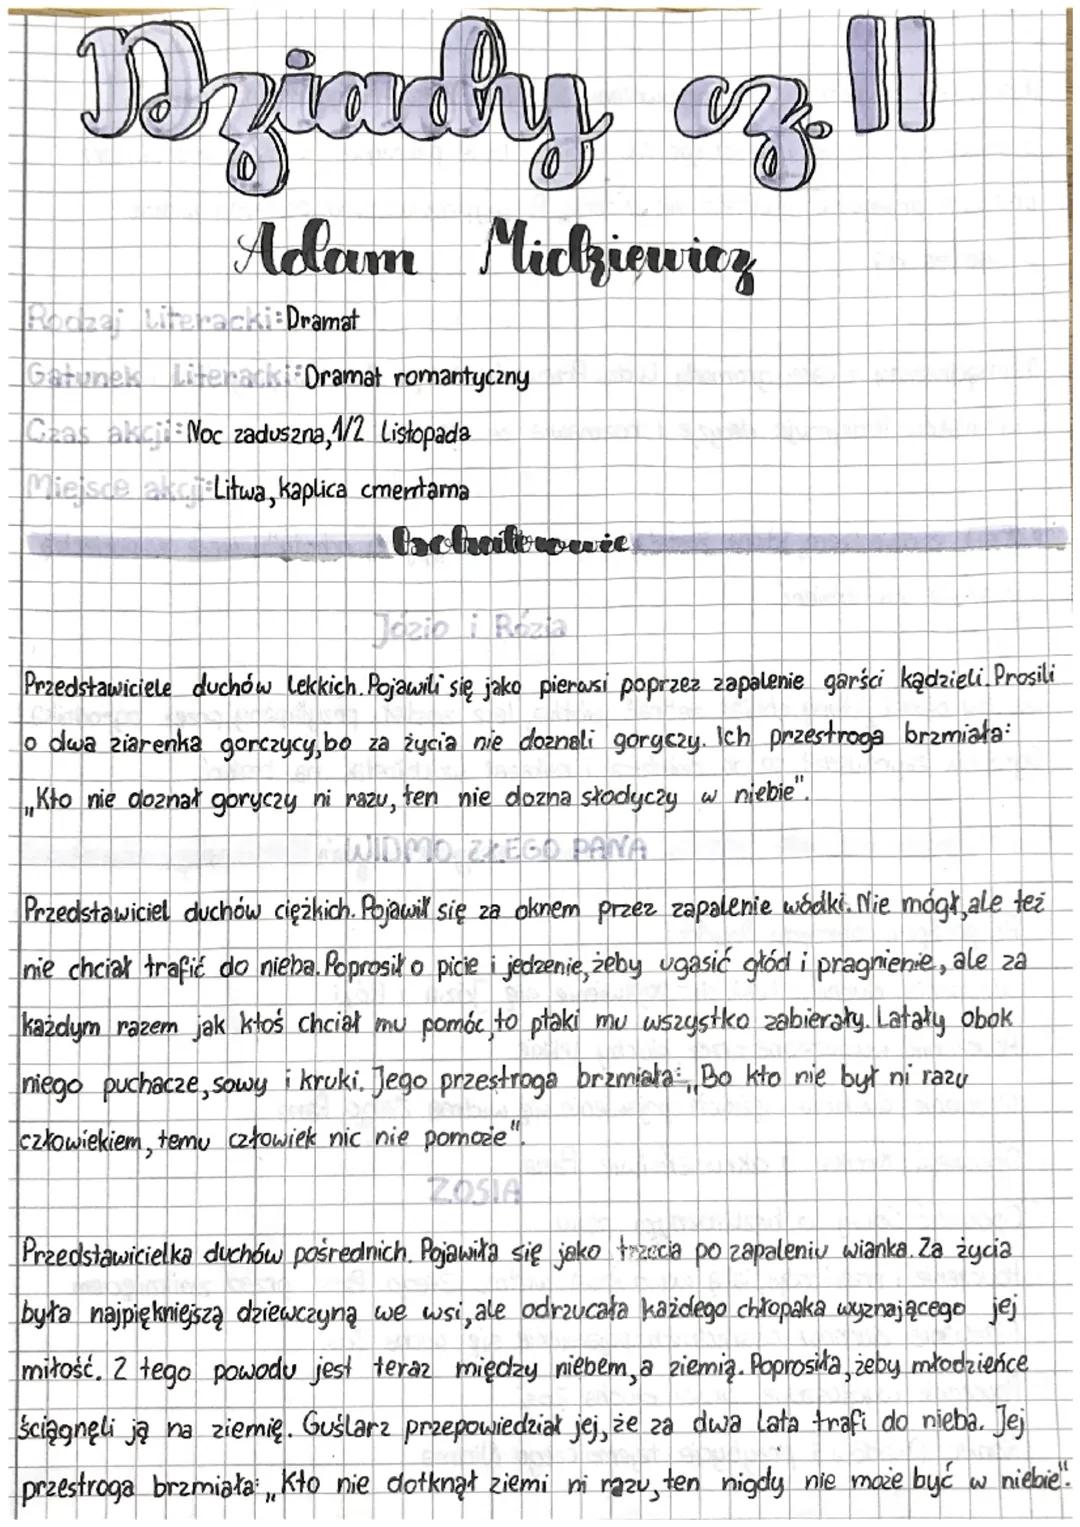 Dziady cz. II
Adam Mickiewicz
Rodzaj literacki: Dramat
Gatunek literacki: Dramat romantyczny
Czas akcji: Noc zaduszna, 1/2 Listopada
Miejsce akcji: Litwa, kaplica cmentarna
bohaterowie
Józio i Rózia
Przedstawiciele duchów lekkich. Pojawili się jako pierwsi poprzez zapalenie garści kądzieli. Prosili
o dwa ziarenka gorczycy, bo za życia nie doznali goryczy. Ich przestroga brzmiała:
„Kto nie doznał goryczy ni razu, ten nie dozna słodyczy w niebie".
WIDMO ZŁEGO PANA
Przedstawiciel duchów ciężkich. Pojawił się za oknem przez zapalenie wódki. Nie mógł, ale też
nie chciał trafić do nieba. Poprosił o picie i jedzenie, żeby ugasić głód i pragnienie, ale za
każdym razem jak ktoś chciał mu pomóc, to ptaki mu wszystko zabierały. Latały obok
niego puchacze, sowy i kruki. Jego przestroga brzmiała: „Bo kto nie był ni razu
człowiekiem, temu człowiek nic nie pomoże".
ZOSIA
Przedstawicielka duchów pośrednich. Pojawiła się jako trzecia po zapaleniu wianka. Za życia
była najpiękniejszą dziewczyną we wsi, ale odrzucała każdego chłopaka wyznającego jej
miłość. Z tego powodu jest teraz między niebem, a ziemią. Poprosiła, żeby młodzieńce
ściągnęli ją na ziemię. Guślarz przepowiedział jej, że za dwa lata trafi do nieba. Jej
przestroga brzmiała: „Kto nie dotknął ziemi ni razu, ten nigdy nie może być w niebie".